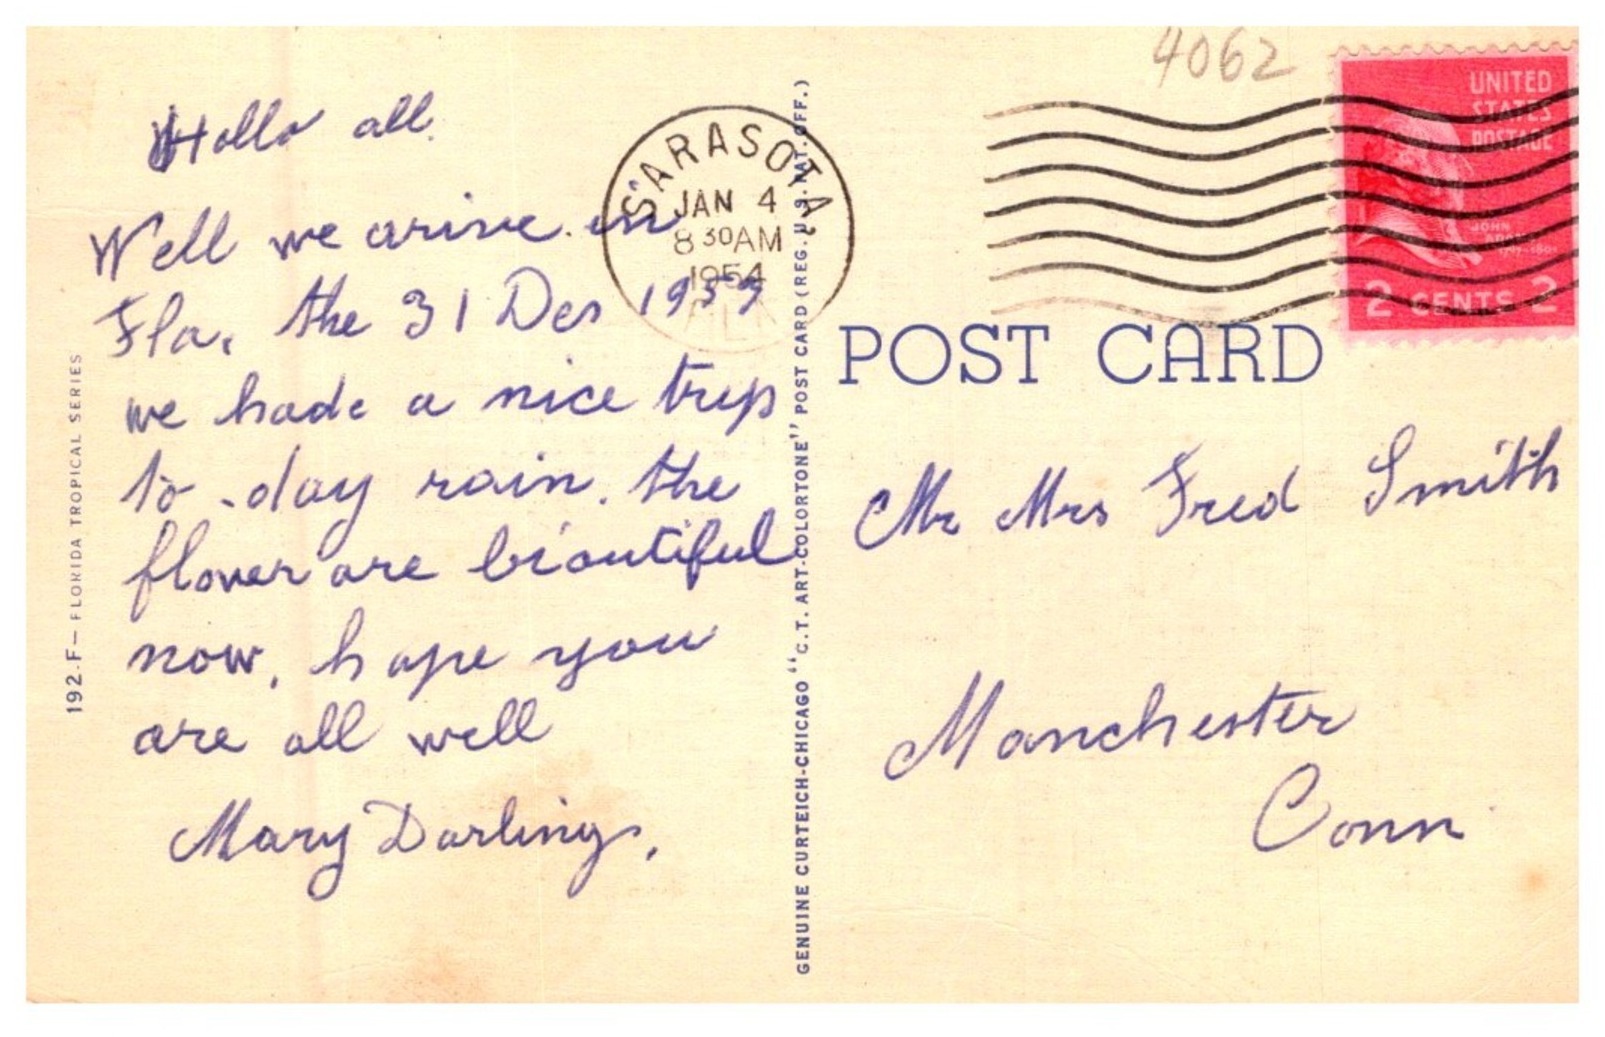 4062
UNITED
STATES
POSTAGE
JOHN
ADAMS
1797-1801
2 CENTS 2
SARASOTA,
JAN 4
8 30 AM
1954
FLA
Hello all.
Well we arive in
Fla. the 31 Des 1953
we hade a nice trip
to-day rain. the
flower are beautiful
now, hope you
are all well
Mary Darling,
192-F— FLORIDA TROPICAL SERIES
GENUINE CURTEICH-CHICAGO "C.T. ART-COLORTONE" POST CARD (REG. U.S. PAT. OFF.)
POST CARD
Mr Mrs Fred Smith
Manchester
Conn